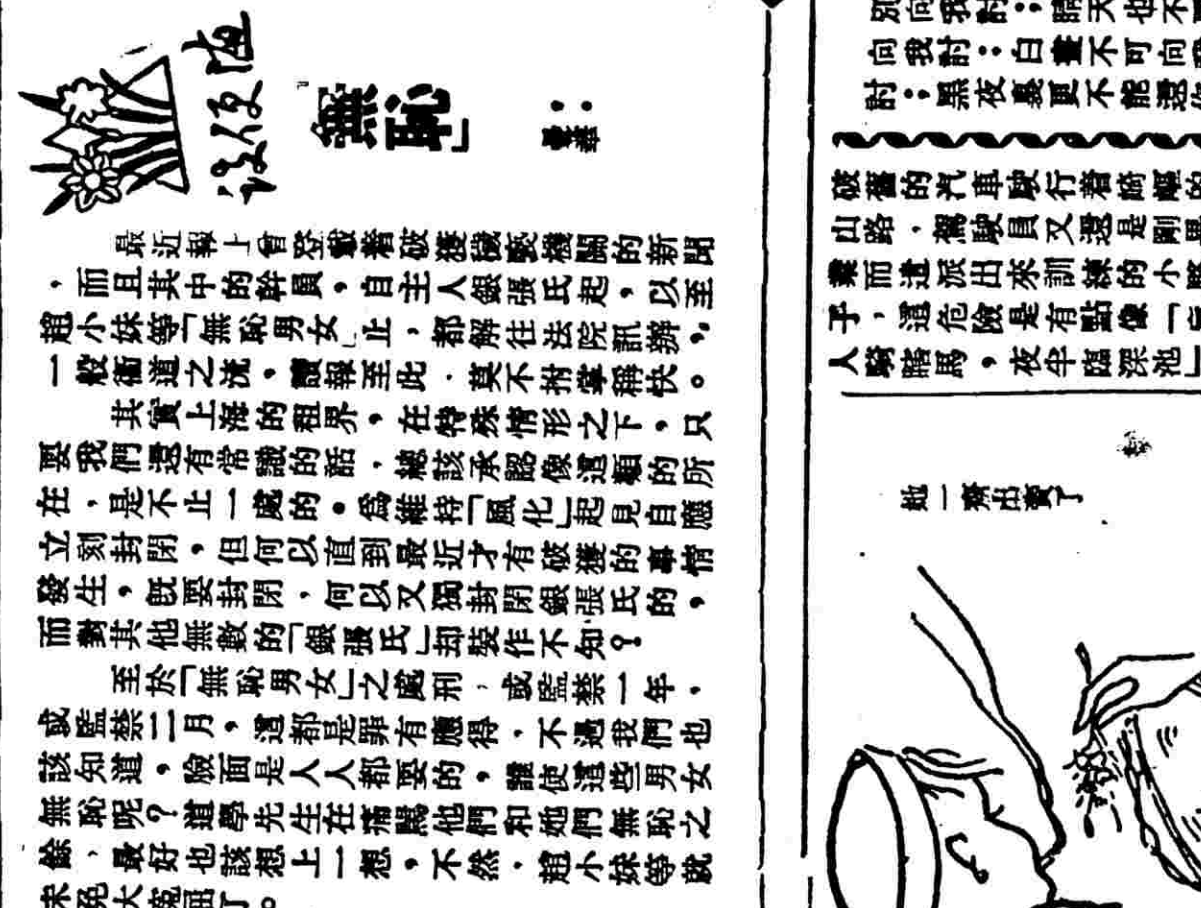 隨便談
「無恥」
最近報上曾登載着破獲穢褻機關的新聞
，而且其中的幹員，自主人銀張氏起，以至
趙小妹等「無恥男女」止，都解往法院訊辦，
一般衞道之流，讀報至此，莫不拊掌稱快。
其實上海的租界，在特殊情形之下，只
要我們還有常識的話，總該承認像這類的所
在，是不止一處的。爲維持「風化」起見自應
立刻封閉，但何以直到最近才有破獲的事情
發生，旣要封閉，何以又獨封閉銀張氏的，
而對其他無數的「銀張氏」却裝作不知？
至於「無恥男女」之處刑，或監禁一年，
或監禁二月，這都是罪有應得，不過我們也
該知道，臉面是人人都要的，誰使這些男女
無恥呢？道學先生在痛罵他們和她們無恥之
餘，最好也該想上一想，不然，趙小妹等就
未免大寃屈了。
別向我討；晴天也不
向我討；白晝不可向
討；黑夜裏更不能還
破舊的汽車駛行着崎嶇的
山路，駕駛員又還是剛畢
業而遣派出來訓練的小
子，這危險是有點像「
人騎瞎馬，夜半臨深池」
她一齊出賣了